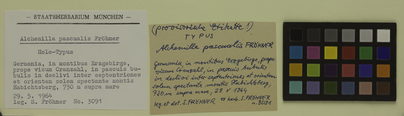 — STAATSHERBARIUM MÜNCHEN —
Alchemilla pascualis Fröhner
Holo-Typus
Germania, in montibus Erzgebirge,
prope vicum Cranzahl, in pascuis bu-
bulis in declivi inter septentriones
et orientem colem spectante montis
Habichtsberg, 750 m supra mare
29. 5. 1964
leg. S. Fröhner Nr. 3091
(provisorische Etikette!)
TYPUS
Alchemilla pascualis FRÖHNER
Germania, in montibus Erzgebirge, prope
vicum Cranzahl, in pascuis bubulis
in declivi inter septentriones et orientem
colem spectante montis Habichtsberg,
750 m supra mare, 29. V. 1964
leg. et det. S. FRÖHNER